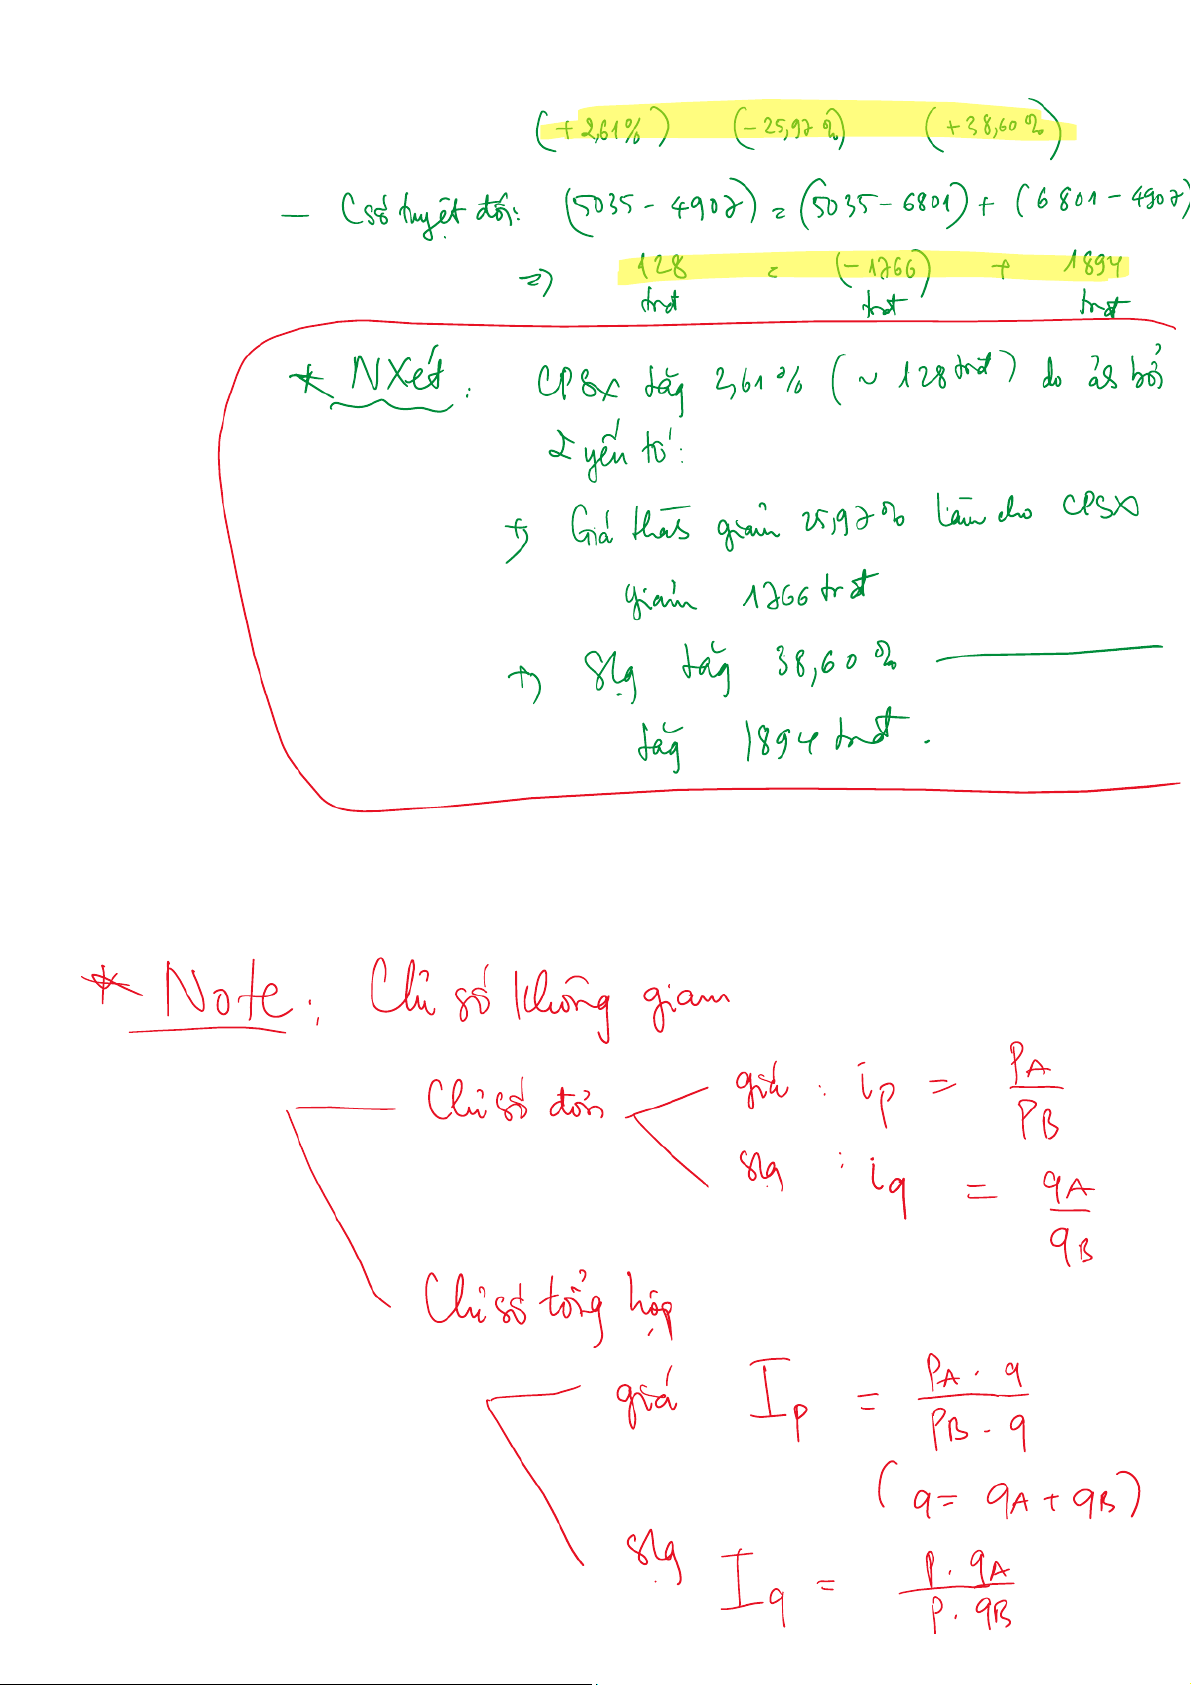 (+2,61%) (-25,97%) (+38,60%)
- Csố tuyệt đối: (5035 - 4907) = (5035 - 6801) + (6801 - 4907)
=> 128 = (-1766) + 1894
trđ trđ trđ
* NXét: CPSX tăg 2,61% (~ 128 trđ) do ảh bởi
2 yếu tố:
+) Giá thàh giảm 25,97% làm cho CPSX
giảm 1766 trđ
+) Slg tăg 38,60% ———
tăg 1894 trđ.
* Note: Chỉ số không gian
Chỉ số đơn giá: ip = PA / PB
slg: iq = qA / qB
Chỉ số tổng hợp
giá Ip = PA . q / PB . q
(q = qA + qB)
slg Iq = P . qA / P . qB